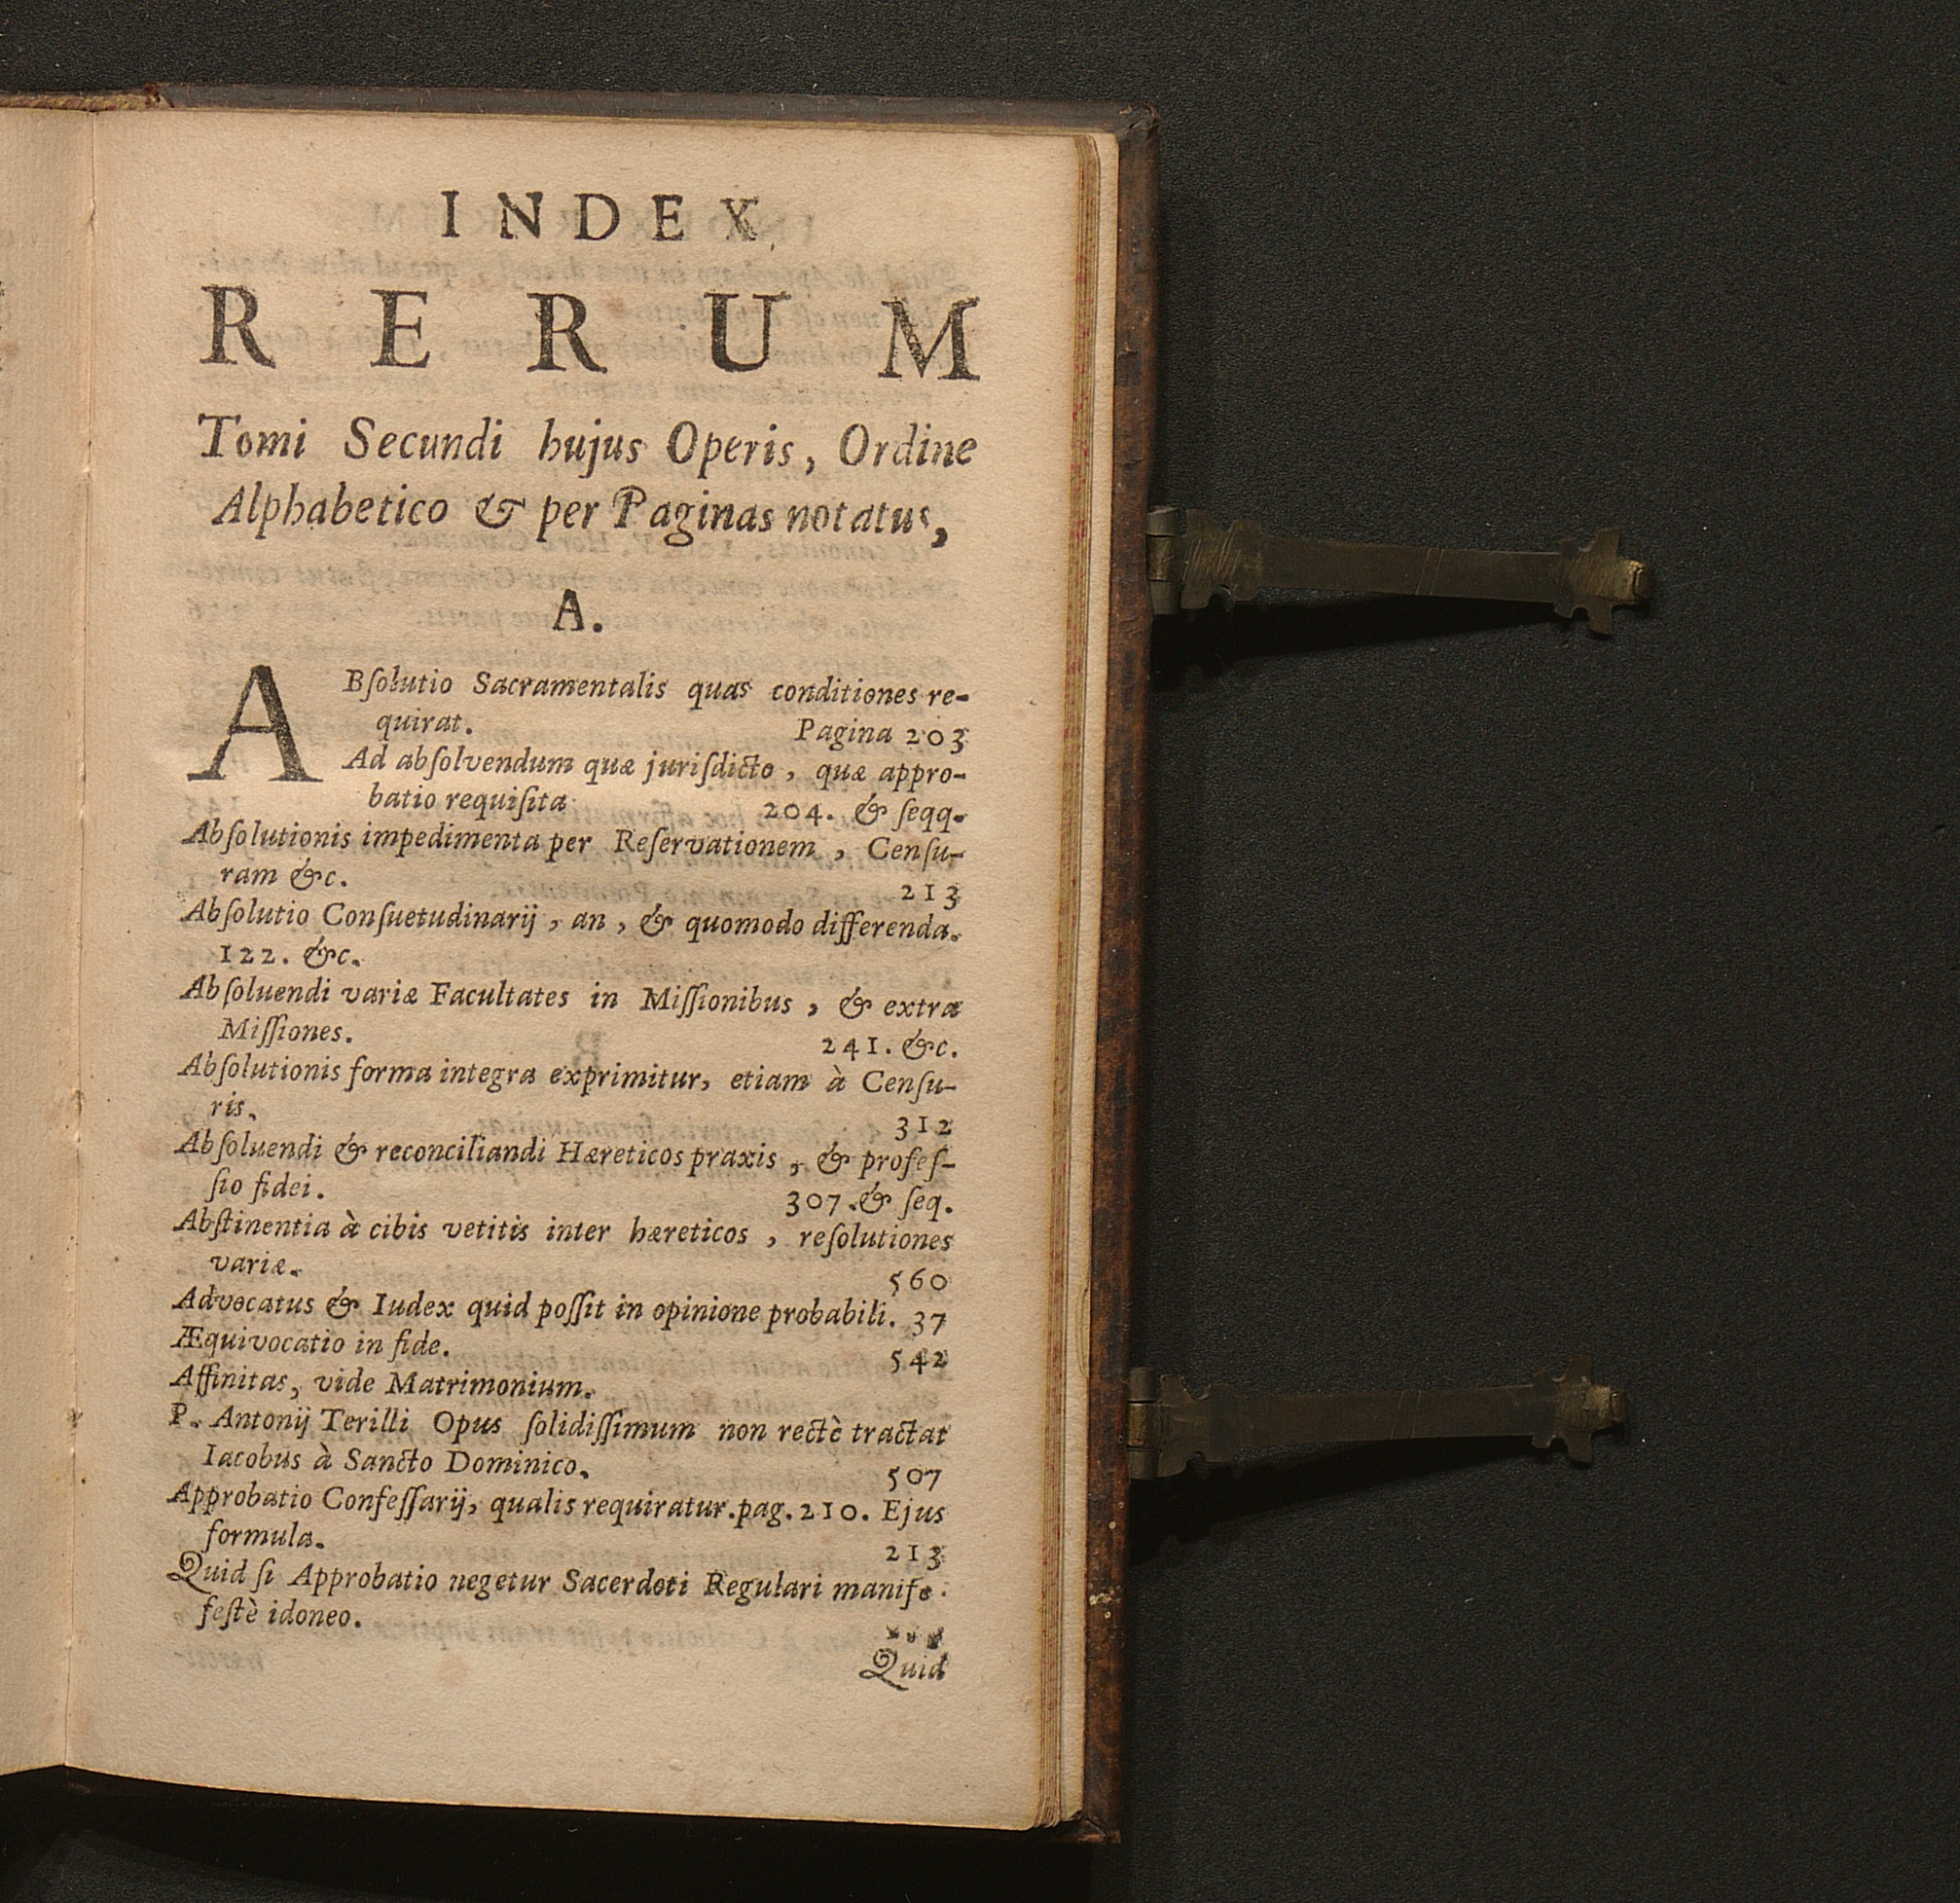 INDEX
RERUM
Tomi Secundi hujus Operis, Ordine
Alphabetico & per Paginas notatus,
A.
ABſolutio Sacramentalis quas conditiones re-
quirat. Pagina 203
Ad abſolvendum quæ juriſdicto, quæ appro-
batio requiſita 204. & ſeqq.
Abſolutionis impedimenta per Reſervationem, Cenſu-
ram &c. 213
Abſolutio Conſuetudinarij, an, & quomodo differenda.
122. &c.
Abſoluendi variæ Facultates in Miſſionibus, & extra
Miſſiones. 241. &c.
Abſolutionis forma integra exprimitur, etiam à Cenſu-
ris. 312
Abſoluendi & reconciliandi Hæreticos praxis, & profeſ-
ſio fidei. 307. & ſeq.
Abſtinentia à cibis vetitis inter hæreticos, reſolutiones
variæ. 560
Advocatus & Iudex quid poſſit in opinione probabili. 37
Æquivocatio in fide. 542
Affinitas, vide Matrimonium.
P. Antonij Terilli Opus ſolidiſſimum non rectè tractat
Iacobus à Sancto Dominico. 507
Approbatio Confeſſarij, qualis requiratur. pag. 210. Ejus
formula. 213
Quid ſi Approbatio negetur Sacerdoti Regulari manife
ſeſtè idoneo.
Quid